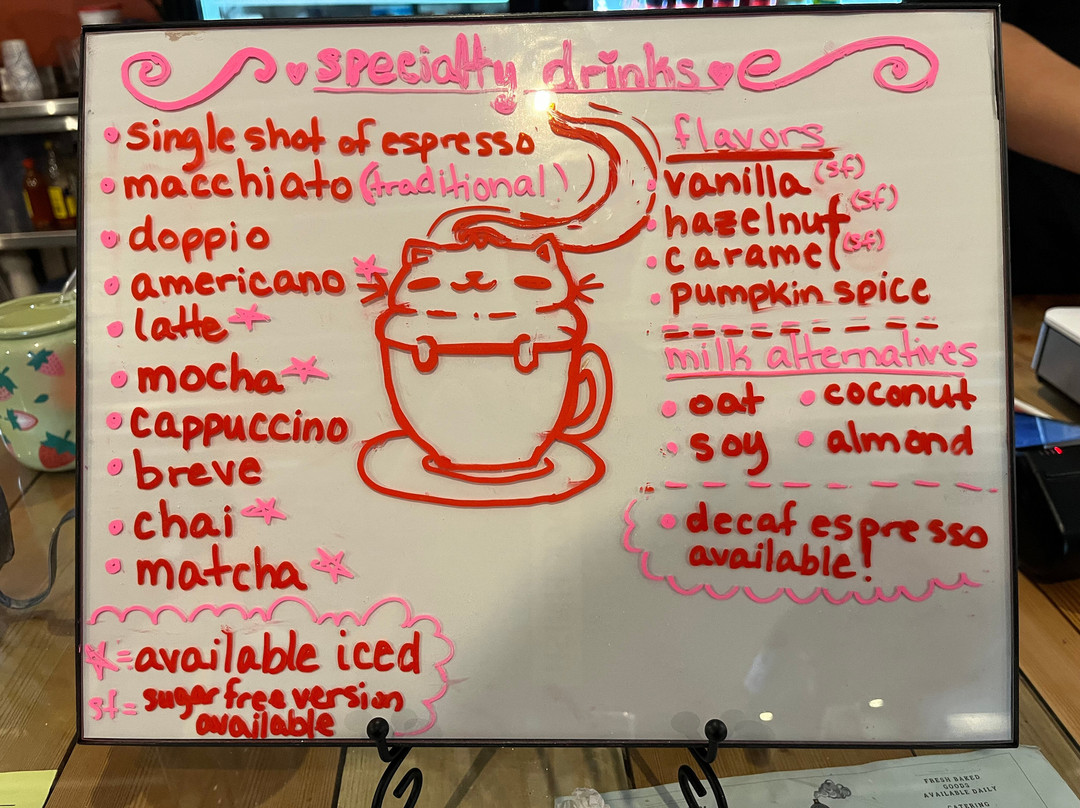 specialty drinks
• single shot of espresso
• macchiato (traditional)
• doppio
• americano ☆
• latte ☆
• mocha ☆
• cappuccino
• breve
• chai ☆
• matcha ☆
☆ = available iced
sf = sugar free version
available
flavors
• vanilla (sf)
• hazelnut (sf)
• caramel (sf)
• pumpkin spice
milk alternatives
• oat • coconut
• soy • almond
• decaf espresso
available!
FRESH BAKED
GOODS
AVAILABLE DAILY
CATERING